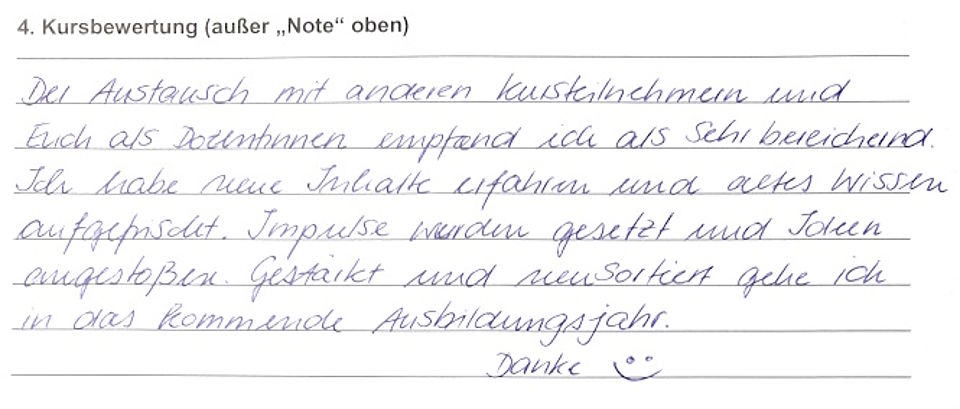 4. Kursbewertung (außer „Note“ oben)
Der Austausch mit anderen Kursteilnehmern und
Euch als Dozentinnen empfand ich als sehr bereichernd.
Ich habe neue Inhalte erfahren und altes Wissen
aufgefrischt. Impulse wurden gesetzt und Ideen
angestoßen. Gestärkt und neu sortiert gehe ich
in das kommende Ausbildungsjahr.
Danke